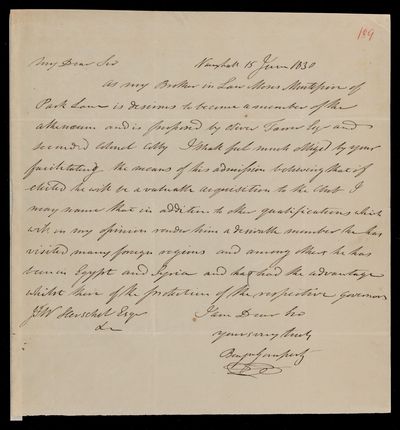 109
My Dear Sir Vauxhall 15 June 1830
As my Brother in Law Moses Montefiore of
Park Lane is desirous to become a member of the
Athenaeum and is proposed by Esq and
seconded Colonel Colby I shall feel much obliged by your
facilitating the means of his admission believing that if
elected he will be a valuable acquisition to the Club. I
may name that in addition to other qualifications which
will in my opinion render him a desirable member he has
visited many foreign regions and among others he has
been in Egypt and Syria and has had the advantage
whilst there of the protection of the respective Governors
J F W Herschel Esqr I am Dear Sir
&c
Yours very truly
Benjn Gompertz